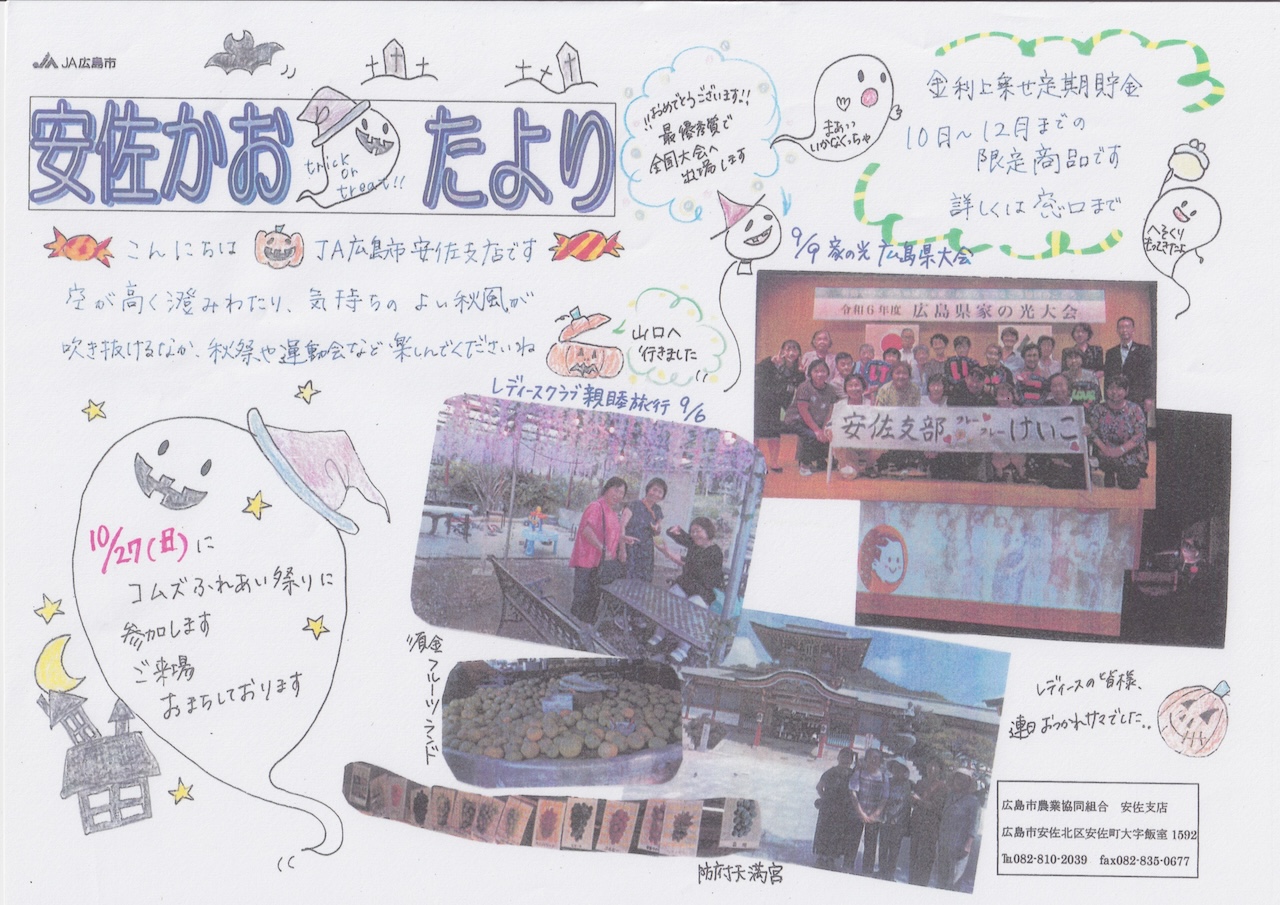 JA広島市
安佐かお
たより
trick
or
treat!!
!!おめでとうございます!!
最優秀賞で
全国大会へ
出場します
まあっ
いかなくっちゃ
金利上乗せ定期貯金
10月〜12月までの
限定商品です
詳しくは窓口まで
へそくり
もってきたよ
こんにちは JA広島市安佐支店です
空が高く澄みわたり、気持ちのよい秋風が
吹き抜けるなか、秋祭や運動会など楽しんでくださいね
山口へ
行きました
9/9 家の光 広島県大会
令和6年度 広島県家の光大会
安佐支部 フレーフレー けいこ
レディースクラブ親睦旅行 9/6
10/27(日)に
コムズふれあい祭りに
参加します
ご来場
おまちしております
須金フルーツランド
防府天満宮
レディースの皆様、
連日おつかれサマでした..
広島市農業協同組合 安佐支店
広島市安佐北区安佐町大字飯室1592
℡082-810-2039 fax082-835-0677